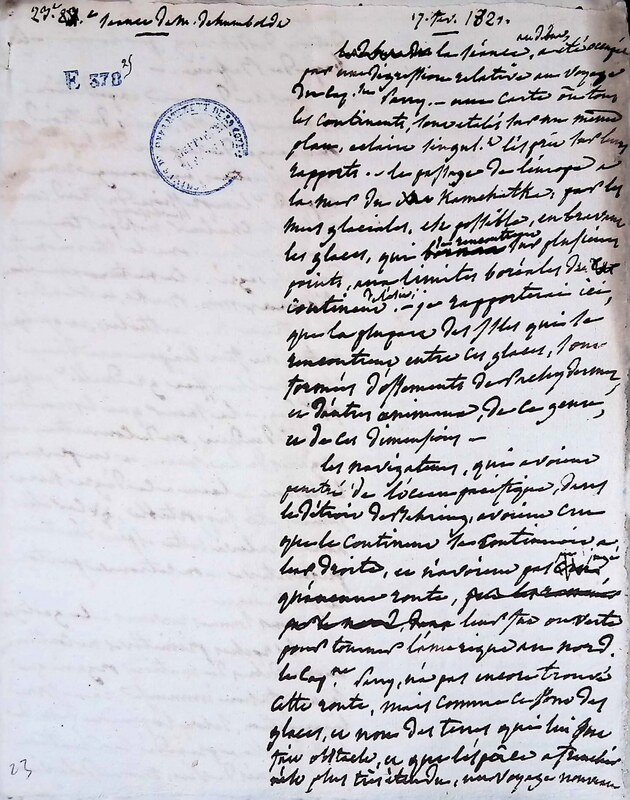 23.e séance de M. de humboldt
17. fev. 1821.
E 378 25
au debut
la séance, a été occupée
par une digression relative au voyage
du Cap.ne Parry. — une carte où tous
les continents, sont etalés sur un même
plan, eclaire singul.t l'esprit sur leurs
rapports. — le passage de l'europe a
la mer du Kamchatka, par les
mers glaciales, est possible, en bravant
les glaces, qui sur plusieurs
points, aux limites boréales de
continent — je rapporterai ici,
que la plupart des Isles qui se
rencontrent entre ces glaces, sont
formés d'ossements de Pachydermes,
et d'autres animaux, de ce genre,
et de ces dimensions —
les navigateurs, qui avoient
penetré de l'ocean pacifique, dans
le détroit de Behring, avoient cru
que le continent se continuoit a
leur droite, et n'avoient pas
qu'aucune route,
leur fut ouverte
pour tourner l'amerique au nord.
le Cap.ne Parry, n'a pas encore trouvé
cette route, mais comme ce sont des
glaces, et non des terres qui lui ont
fait obstacle, et que l'espace a franchir
n'est plus très étendu, un voyage nouveau
23